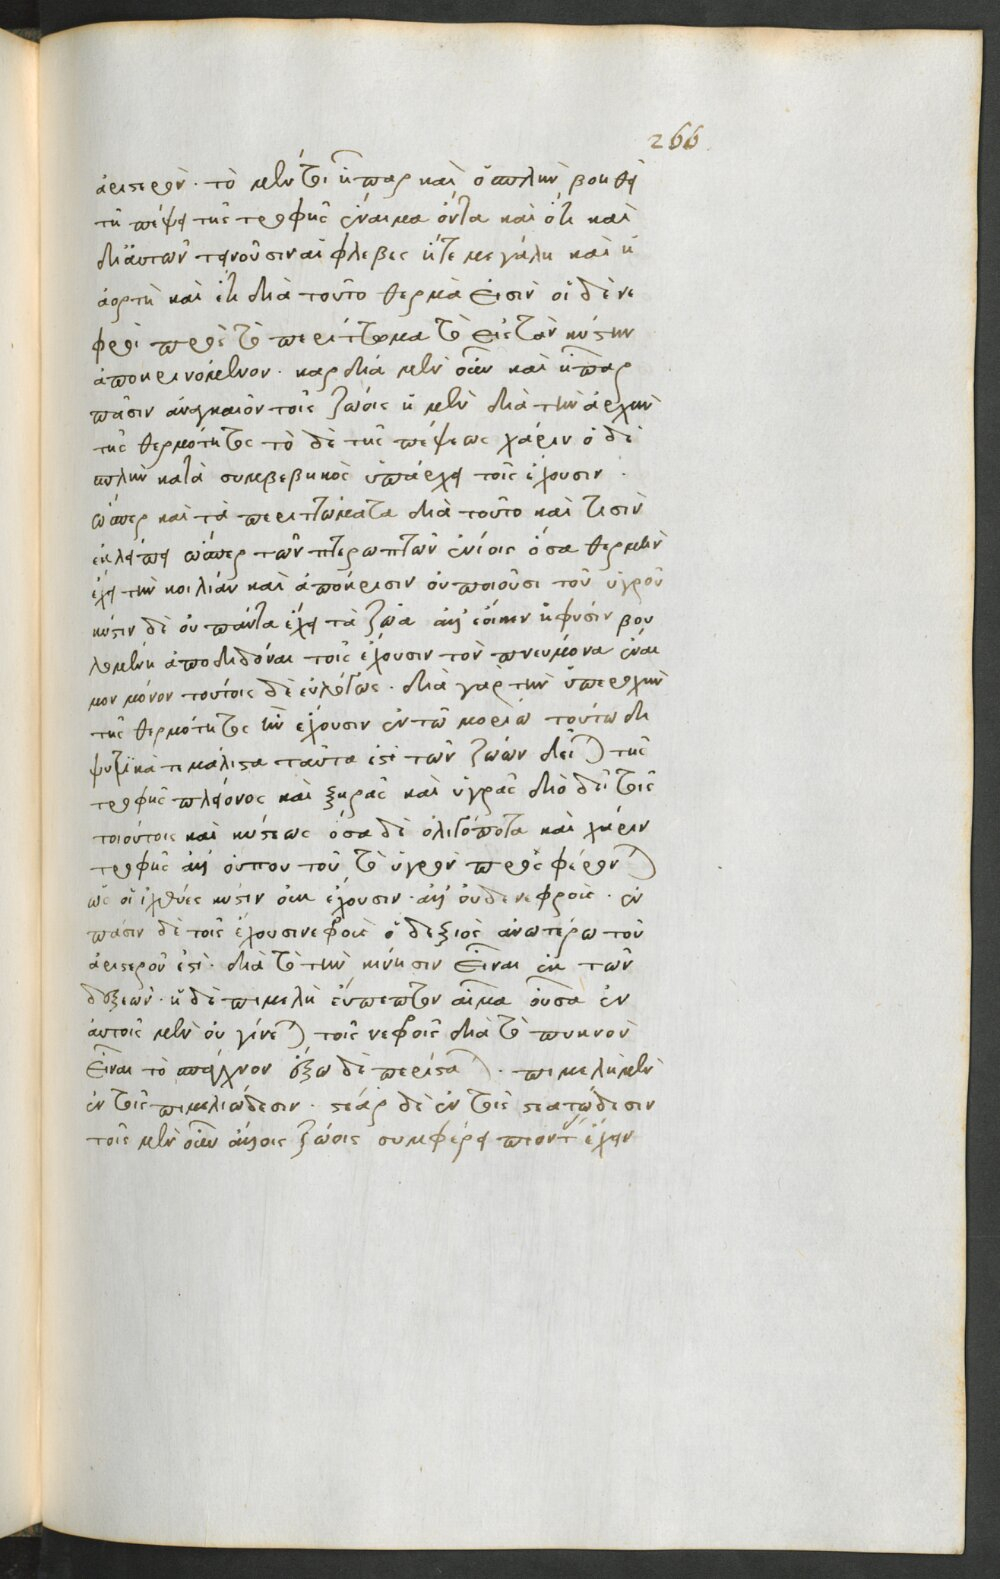 266
ἀριστερόν. τὸ μέντοι ἧπαρ καὶ ὁ σπλὴν βοηθεῖ
τῇ πέψει τῆς τροφῆς ἔναιμα ὄντα καὶ ὅτι καὶ
δι' αὐτῶν τείνουσιν αἱ φλέβες ἥτε μεγάλη καὶ ἡ
ἀορτὴ καὶ ἔτι διὰ τοῦτο θερμά εἰσιν οἱ δὲ νε
φροὶ πρὸς τὸ περίττωμα τὸ εἰς τὴν κύστιν
ἀποκρινόμενον. καρδία μὲν οὖν καὶ ἧπαρ
πᾶσιν ἀναγκαῖον τοῖς ζώοις ἡ μὲν διὰ τὴν ἀρχὴν
τῆς θερμότητος τὸ δὲ τῆς πέψεως χάριν ὁ δὲ
σπλὴν κατὰ συμβεβηκὸς ὑπάρχει τοῖς ἔχουσιν.
ὥσπερ καὶ τὰ περιττώματα διὰ τοῦτο καὶ τισὶν
ἐκλείπει ὥσπερ τῶν πτερωπτῶν ἐνίοις ὅσα θερμὴν
ἔχει τὴν κοιλίαν καὶ ἀπόκρισιν οὐ ποιοῦσι τοῦ ὑγροῦ
κύστιν δὲ οὐ πάντα ἔχει τὰ ζῶα ἀλλ' ἔοικεν ἡ φύσις βου
λομένη ἀποδιδόναι τοῖς ἔχουσιν τὸν πνεύμονα ἔναι
μον μόνον τούτοις δὲ εὐλόγως. διὰ γὰρ τὴν ὑπεροχὴν
τῆς θερμότητος ἣν ἔχουσιν ἐν τῷ μορίῳ τούτῳ δι
ψητικά τε μάλιστα ταῦτα ἐστὶ τῶν ζώων δεῖται τῆς
τροφῆς πλείονος καὶ ξηρᾶς καὶ ὑγρᾶς διὸ δεῖ τοῖς
τοιούτοις καὶ κύστεως ὅσα δὲ ὀλιγόποτα καὶ χάριν
τροφῆς ἀλλ' οὐ που τοῦ τὸ ὑγρὸν προσφέρονται
ὡς οἱ ἰχθύες κύστιν οὐκ ἔχουσιν. ἀλλ' οὐδὲ νεφρούς. ἐν
πᾶσιν δὲ τοῖς ἔχουσι νεφροὺς ὁ δεξιὸς ἀνωτέρω τοῦ
ἀριστεροῦ ἐστί. διὰ τὸ τὴν κίνησιν εἶναι ἐκ τῶν
δεξιῶν. ἡ δὲ πιμελὴ εὔπεπτον αἷμα οὖσα ἐν
αὐτοῖς μὲν οὐ γίνεται τοῖς νεφροῖς διὰ τὸ πυκνὸν
εἶναι τὸ σπλάγχνον ἔξω δὲ περίσταται. πιμελὴ μὲν
ἐν τοῖς πιμελιώδεσιν. στέαρ δὲ ἐν τοῖς στεατώδεσιν
τοῖς μὲν οὖν ἄλλοις ζώοις συμφέρει πίονας ἔχειν